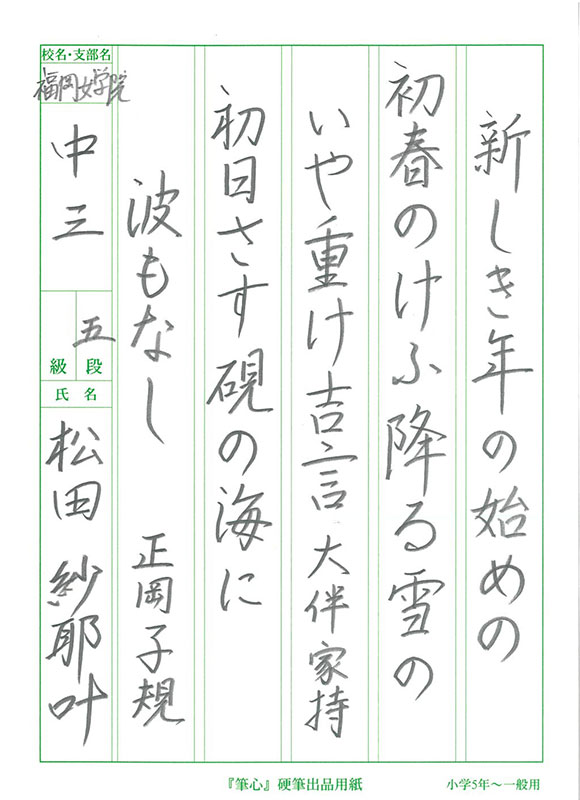 新しき年の始めの
初春のけふ降る雪の
いや重け吉言 大伴家持
初日さす硯の海に
波もなし 正岡子規
校名・支部名
福岡女学院
中三
五
級 段
氏名
松田 紗耶叶
『筆心』硬筆出品用紙
小学5年〜一般用